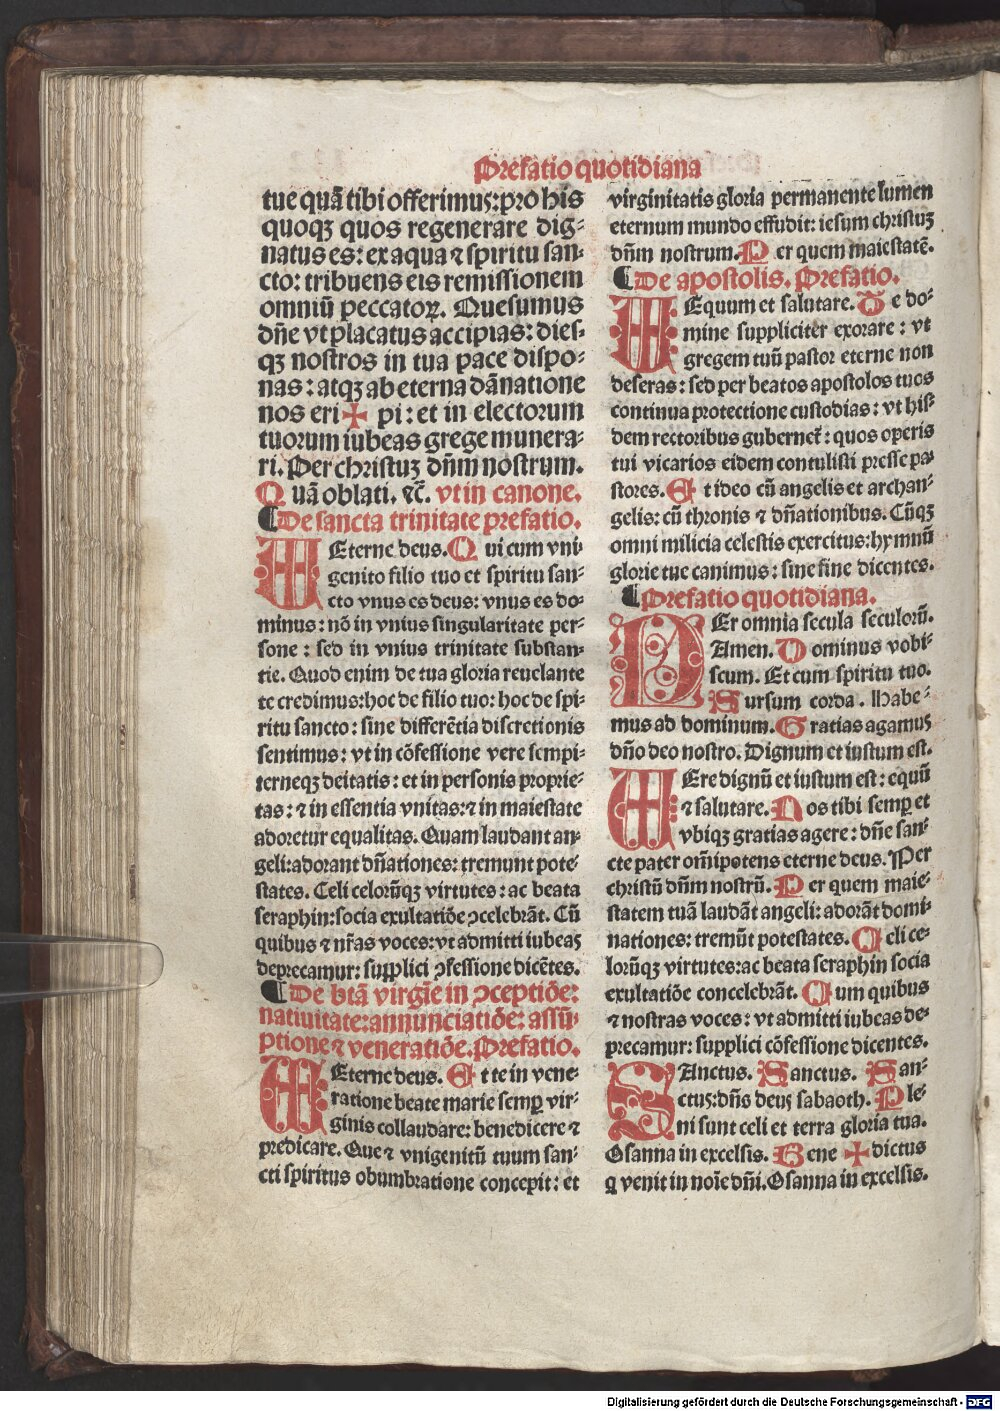 Prefatio quotidiana
tue quā tibi offerimus: pro his
quoqʒ quos regenerare dig⸗
natus es: ex aqua ⁊ spiritu san⸗
cto: tribuens eis remissionem
omniū peccatoꝝ. Quesumus
dn̄e vt placatus accipias: dies⸗
qʒ nostros in tua pace dispo⸗
nas: atqʒ ab eterna dānatione
nos eri ✠ pi: et in electorum
tuorum iubeas grege munera⸗
ri. Per christuʒ dn̄m nostrum.
Quā oblati. ⁊c̄. vt in canone.
¶ De sancta trinitate prefatio.
VE Eterne deus. Qui cum vni⸗
genito filio tuo et spiritu san⸗
cto vnus es deus: vnus es do⸗
minus: nō in vnius singularitate per⸗
sone: sed in vnius trinitate substan⸗
tie. Quod enim de tua gloria reuelante
te credimus: hoc de filio tuo: hoc de spi⸗
ritu sancto: sine differētia discretionis
sentimus: vt in cōfessione vere sempi⸗
terneqʒ deitatis: et in personis proprie⸗
tas: ⁊ in essentia vnitas: ⁊ in maiestate
adoretur equalitas. Quam laudant an⸗
geli: adorant dn̄ationes: tremunt pote⸗
states. Celi celorūqʒ virtutes: ac beata
seraphin: socia exultatiōe ↄcelebrāt. Cū
quibus ⁊ nr̄as voces: vt admitti iubeas
deprecamur: supplici ↄfessione dicētes.
¶ De btā virgīe in ↄceptiōe:
natiuitate: annunciatiōe: assū⸗
ptione ⁊ veneratiōe. Prefatio.
VE Eterne deus. Et te in vene⸗
ratione beate marie semꝑ vir⸗
ginis collaudare: benedicere ⁊
predicare. Que ⁊ vnigenitū tuum san⸗
cti spiritus obumbratione concepit: et
virginitatis gloria permanente lumen
eternum mundo effudit: iesum christuʒ
dn̄m nostrum. Per quem maiestatē.
¶ De apostolis. Prefatio.
VE Equum et salutare. Te do⸗
mine suppliciter exorare: vt
gregem tuū pastor eterne non
deseras: sed per beatos apostolos tuos
continua protectione custodias: vt his⸗
dem rectoribus gubernet̄: quos operis
tui vicarios eidem contulisti preesse pa⸗
stores. Et ideo cū angelis et archan⸗
gelis: cū thronis ⁊ dn̄ationibus. Cūqʒ
omni milicia celestis exercitus: hymnū
glorie tue canimus: sine fine dicentes.
¶ Prefatio quotidiana.
PEr omnia secula seculorū.
Amen. Dominus vobi⸗
scum. Et cum spiritu tuo.
Sursum corda. Habe⸗
mus ad dominum. Gratias agamus
dn̄o deo nostro. Dignum et iustum est.
VEre dignū et iustum est: equū
⁊ salutare. Nos tibi semꝑ et
vbiqʒ gratias agere: dn̄e san⸗
cte pater om̄ipotens eterne deus. Per
christū dn̄m nostrū. Per quem maie⸗
statem tuā laudāt angeli: adorāt domi⸗
nationes: tremūt potestates. Celi ce⸗
lorūqʒ virtutes: ac beata seraphin socia
exultatiōe concelebrāt. Cum quibus
⁊ nostras voces: vt admitti iubeas de⸗
precamur: supplici cōfessione dicentes.
SAnctus. Sanctus. San⸗
ctus: dn̄s deus sabaoth. Ple⸗
ni sunt celi et terra gloria tua.
Osanna in excelsis. Bene ✠ dictus
q venit in noīe dn̄i. Osanna in excelsis.
Digitalisierung gefördert durch die Deutsche Forschungsgemeinschaft - DFG